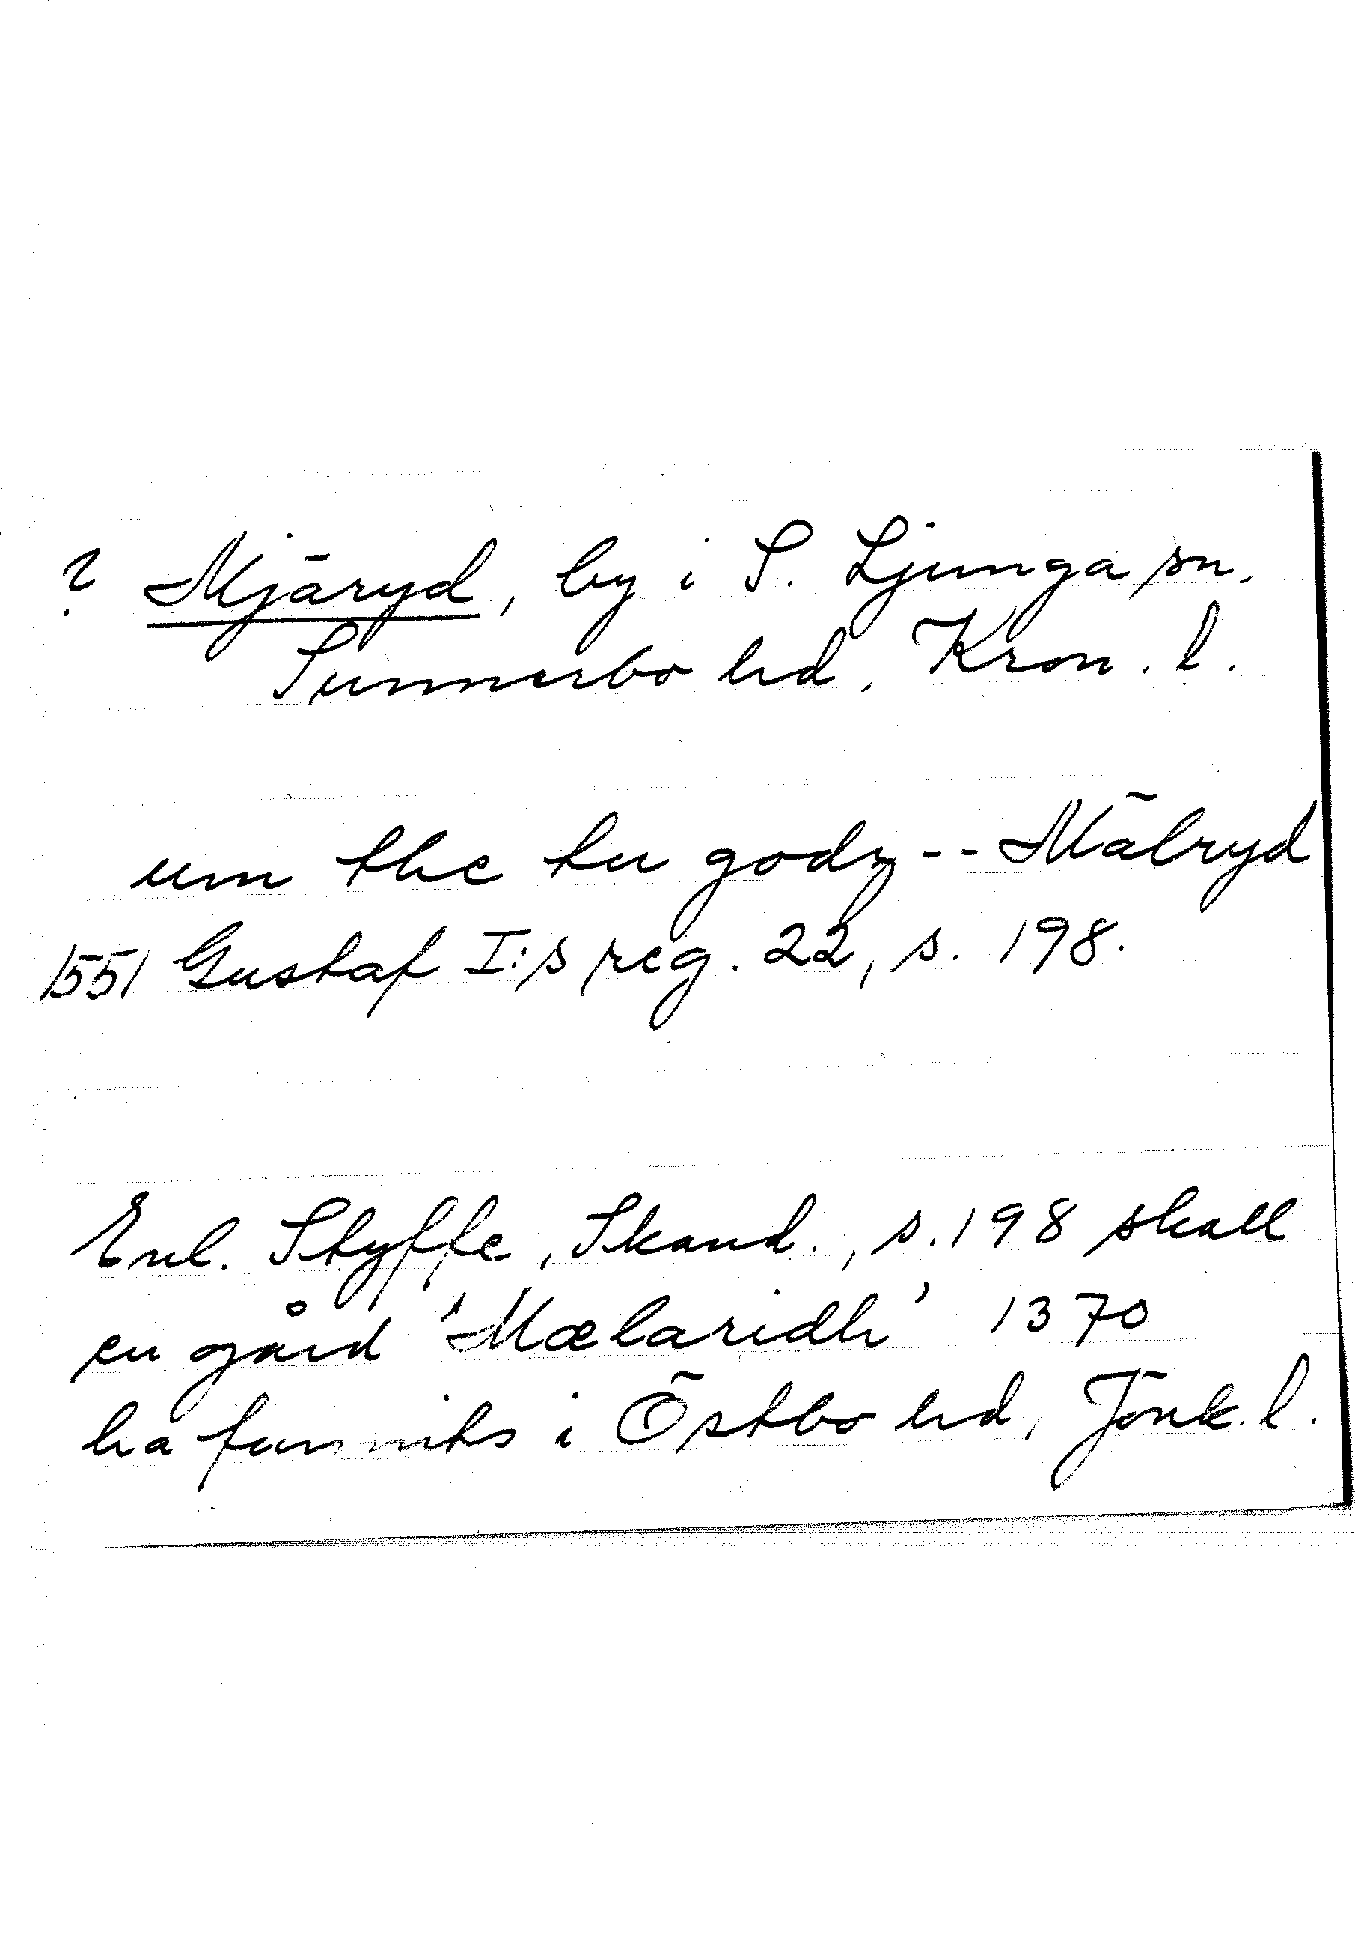 ? Mjäryd, by i S. Ljunga sn,
Sunnerbo hd, Kron. l.
um the tu godz -- Mälryd
1551 Gustaf I:s reg. 22, s. 198.
Enl. Styffe, Skand., s. 198 skall
en gård 'Mælaridh' 1370
ha funnits i Östbo hd, Jönk. l.